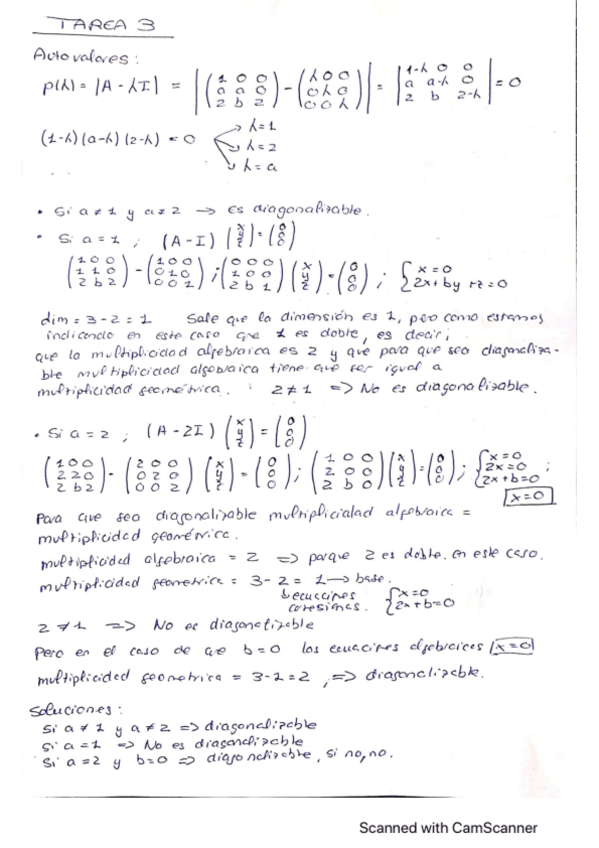 TAREA 3
Autovalores:
p(λ) = |A - λI| = |(1 0 0 / a a 0 / 2 b 2) - (λ 0 0 / 0 λ 0 / 0 0 λ)| = |1-λ 0 0 / a a-λ 0 / 2 b 2-λ| = 0
(1-λ)(a-λ)(2-λ) = 0 → λ=1 → λ=2 → λ=a
• Si a≠1 y a≠2 → es diagonalizable.
• Si a=1; (A-I) (x y z) = (0 0 0)
(1 0 0 / 1 1 0 / 2 b 2) - (1 0 0 / 0 1 0 / 0 0 1); (0 0 0 / 1 0 0 / 2 b 1) (x y z) = (0 0 0); { x=0 / 2x+by+z=0
dim = 3-2 = 1 Sale que la dimensión es 1, pero como estamos
indicando en este caso que 1 es doble, es decir;
que la multiplicidad algebraica es 2 y que para que sea diagonaliza-
ble multiplicidad algebraica tiene que ser igual a
multiplicidad geométrica. 2≠1 => No es diagonalizable.
• Si a=2; (A-2I) (x y z) = (0 0 0)
(1 0 0 / 2 2 0 / 2 b 2) - (2 0 0 / 0 2 0 / 0 0 2) (x y z) = (0 0 0); (1 0 0 / 2 0 0 / 2 b 0) (x y z) = (0 0 0); { x=0 / 2x=0 / 2x+b=0 ;
x=0
Para que sea diagonalizable multiplicidad algebraica =
multiplicidad geométrica.
multiplicidad algebraica = 2 => porque 2 es doble en este caso.
multiplicidad geometrica = 3-2 = 1 → base.
ecuaciones { x=0
{ 2x+b=0
2≠1 => No es diagonalizable
Pero en el caso de que b=0 las ecuaciones algebraicas x=0
multiplicidad geometrica = 3-1=2, => diagonalizable.
Soluciones:
Si a≠1 y a≠2 => diagonalizable
Si a=1 => No es diagonalizable
Si a=2 y b=0 => diagonalizable, si no, no.
Scanned with CamScanner